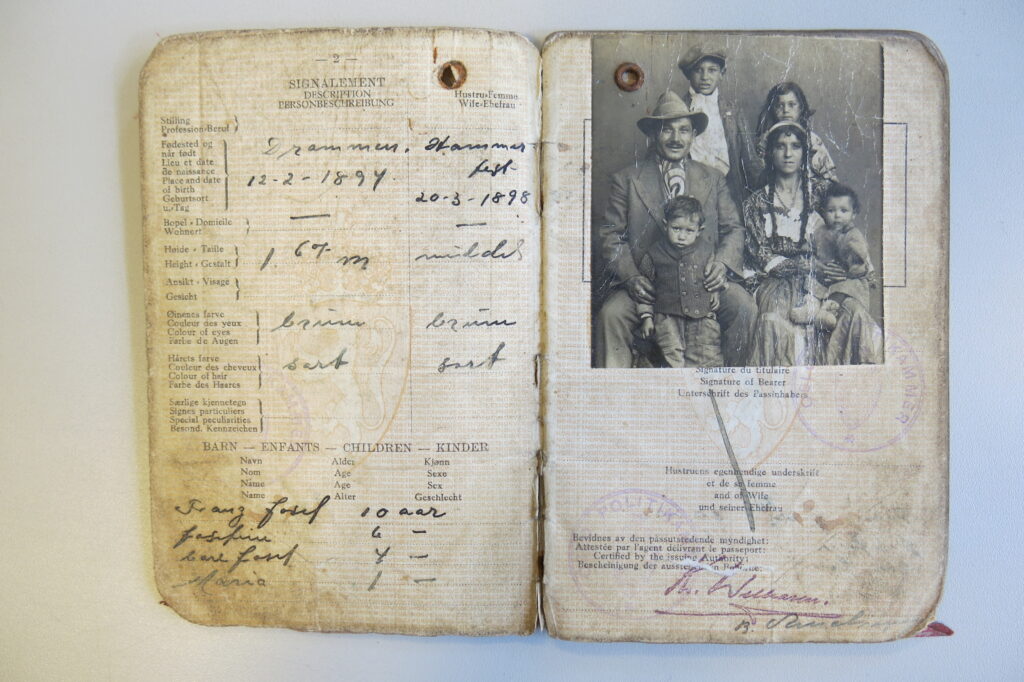 — 2 —
SIGNALEMENT
DESCRIPTION
PERSONBESCHREIBUNG
Hustru-Femme
Wife-Ehefrau
Stilling
Profession-Beruf
Fødested og
når født
Lieu et date
de naissance
Place and date
of birth
Geburtsort
u. Tag
Drammen. Hammer-
fest
12-2-1897. 20-3-1898
Bopel - Domicile
Wohnort
— —
Høide - Taille
Height - Gestalt
1.67 m middel
Ansikt - Visage
Gesicht
Øinenes farve
Couleur des yeux
Colour of eyes
Farbe de Augen
brune brune
Hårets farve
Couleur des cheveux
Colour of hair
Farbe des Haares
sort sort
Særlige kjennetegn
Signes particuliers
Special peculiarities
Besond. Kennzeichen
BARN — ENFANTS — CHILDREN — KINDER
Navn Alder Kjønn
Nom Age Sexe
Name Age Sex
Name Alter Geschlecht
Franz Josef 10 aar
Josefine 6 —
Carl Josef 4 —
Maria 1 —
Signature du titulaire
Signature of Bearer
Unterschrift des Passinhabers
Hustruens egenhendige underskrift
et de sa femme
and of Wife
und seiner Ehefrau
POLITI
Bevidnes av den passutstedende myndighet:
Attestée par l'agent délivrant le passeport:
Certified by the issuing Authority:
Bescheinigung der ausstellenden Behörde: